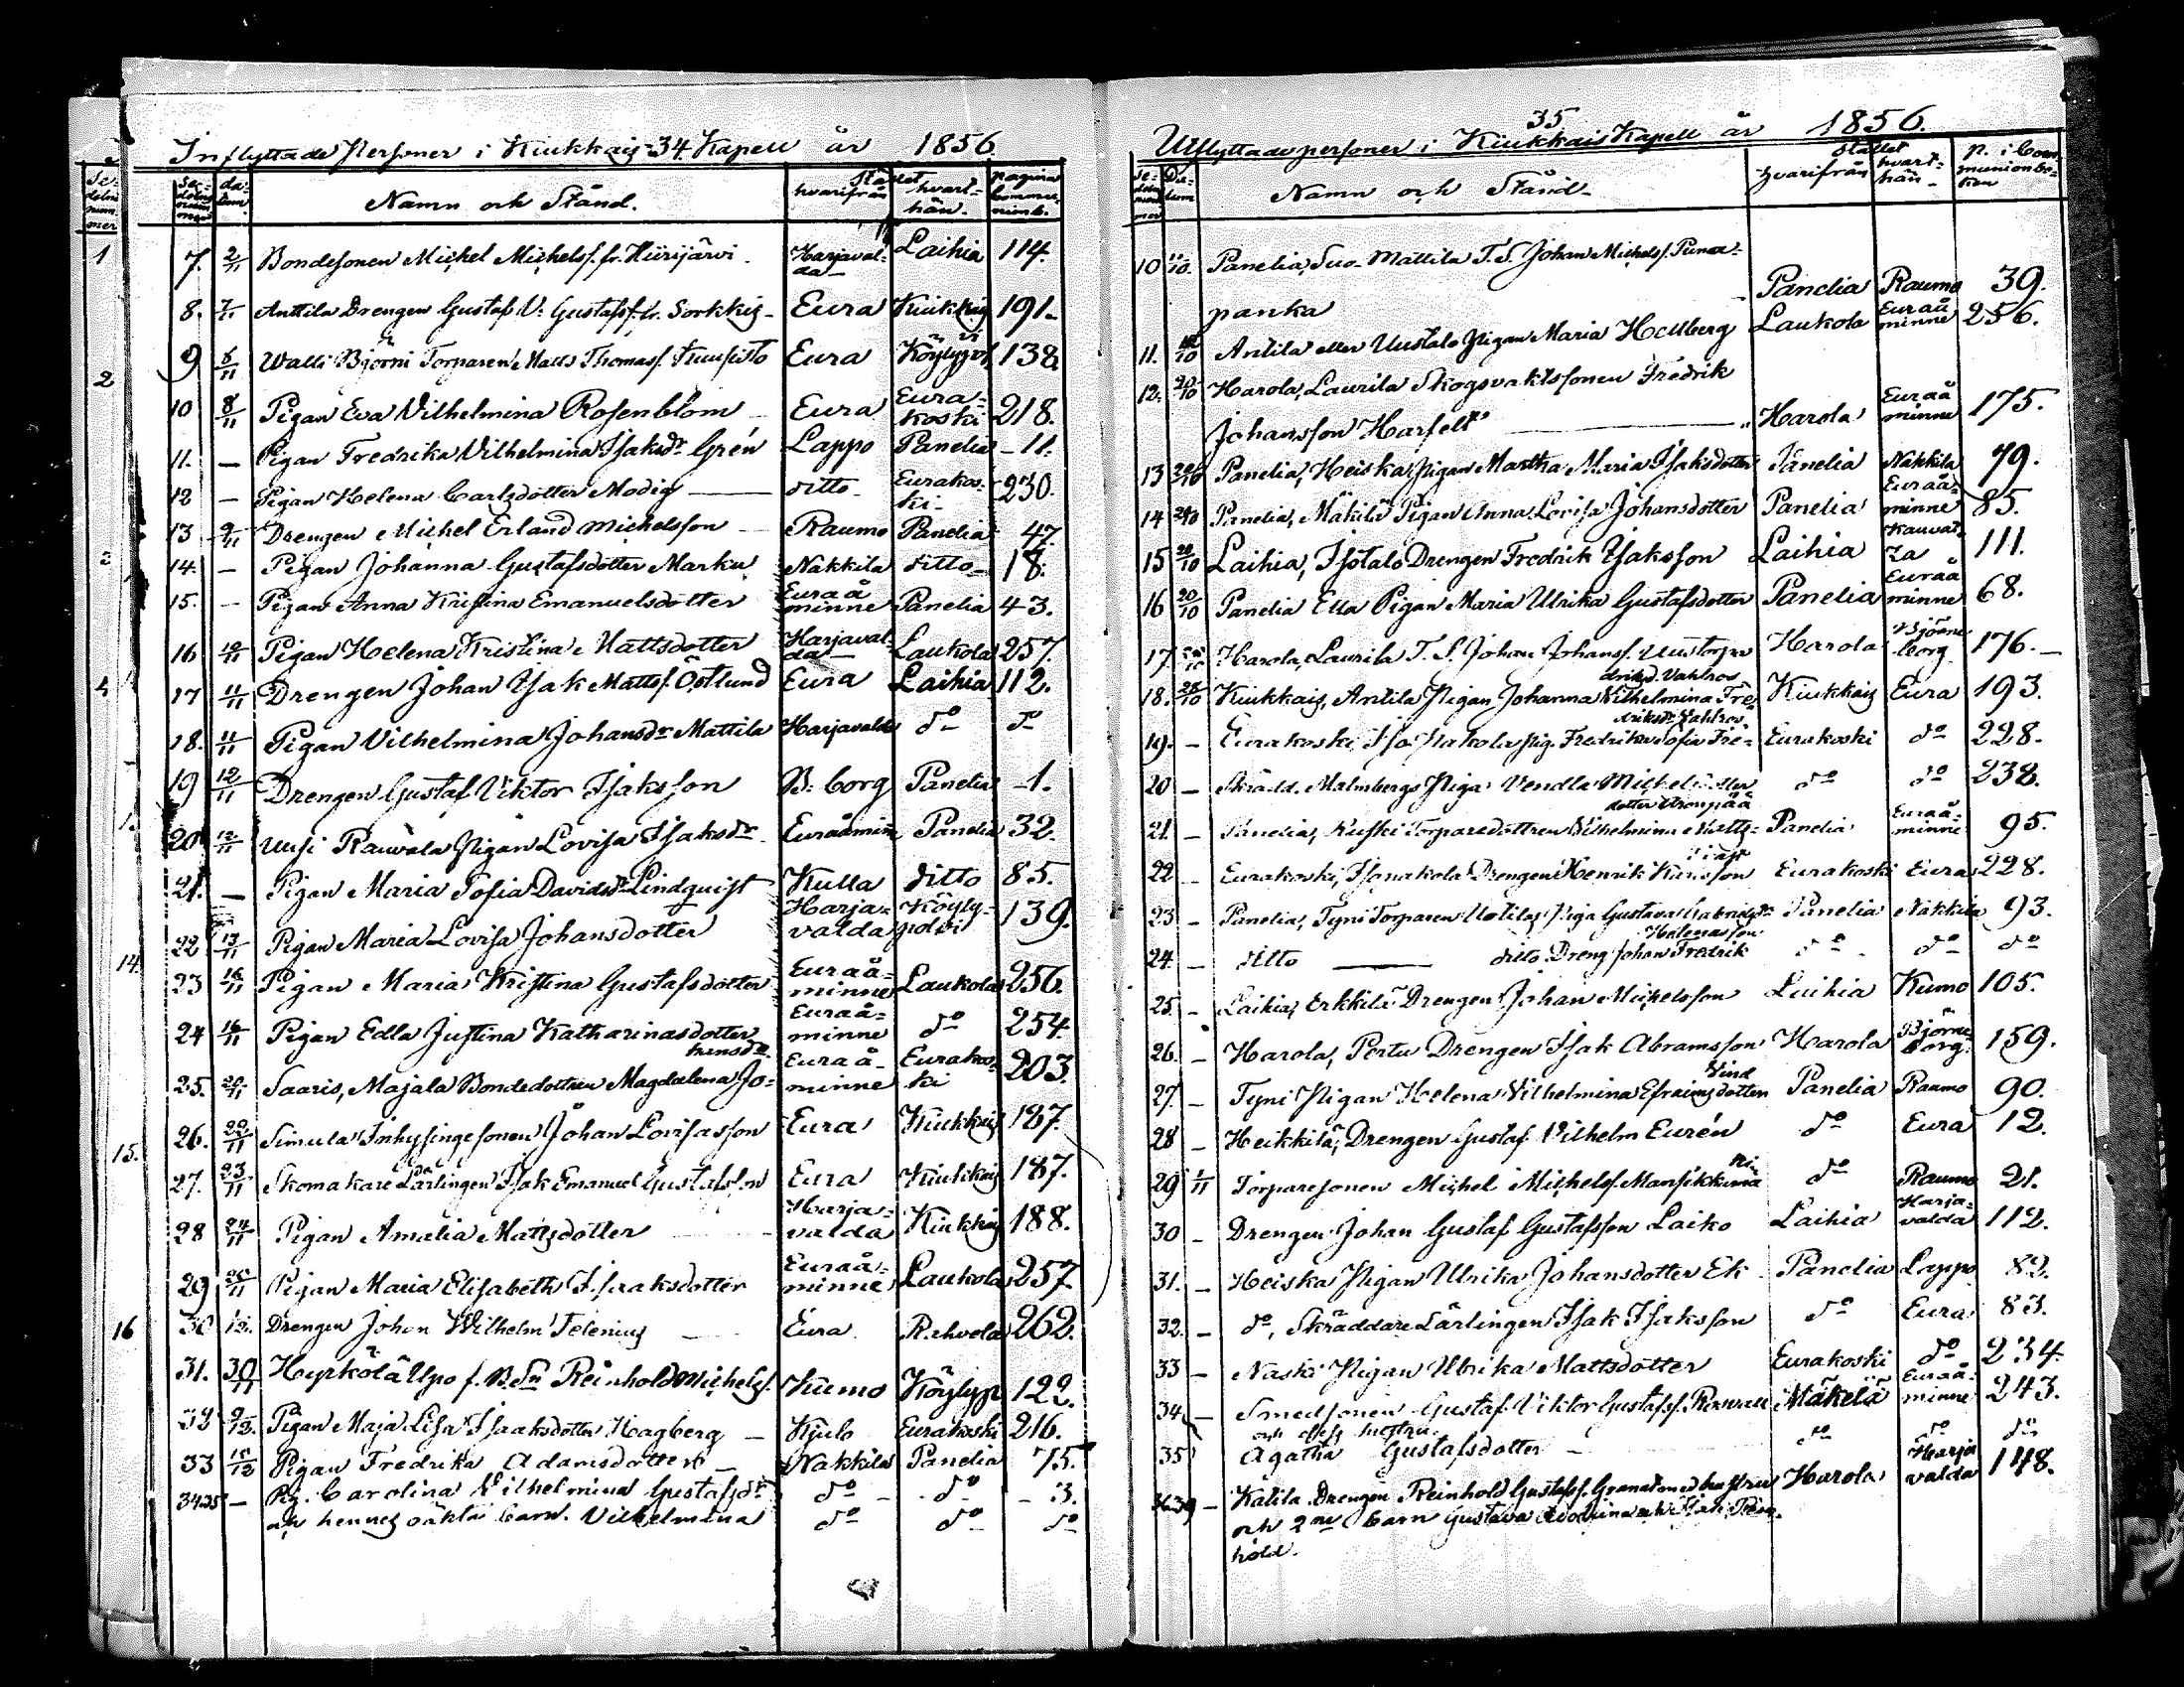 Inflyttade Personer i Kiukkais 34 Kapell år 1856
Sedelns nummer datum Namn och Stånd. Stället hvarifrån hvart-hän. pagina
7. 2/11 Bondesonen Michel Michelss. fr. Hiirijärvi Harjavalda Laihia 114.
8. 7/11 Anttila Drengen Gustaf V. Gustafss. fr. Sorkkis Eura Kiukkais 191.
9 8/11 Walli Björni Torparen Matts Thomass. Kuusisto Eura Köylypol 138
10 8/11 Pigan Eva Vilhelmina Rosenblom Eura Eura-koski 218.
11. — Pigan Fredrika Vilhelmina Isaksdr Grén Lappo Panelia 11.
12 — Pigan Helena Carlsdotter Modig ditto Eurakos-ki 230.
13 9/11 Drengen Michel Erland Michelsson Raumo Panelia 47.
14. — Pigan Johanna Gustafsdotter Marku Nakkila ditto 18.
15. — Pigan Anna Kristina Emanuelsdotter Euraå minne Panelia 43.
16 10/11 Pigan Helena Kristina Mattsdotter Harjaval-da Laukola 257.
17 11/11 Drengen Johan Isak Mattss. Östlund Eura Laihia 112.
18. 11/11 Pigan Vilhelmina Johansdr Mattila Harjavalda do do
19 12/11 Drengen Gustaf Viktor Isaksson B:borg Panelia 1.
20 12/11 Uusi Rauvala Pigan Lovisa Isaksdr Euraåminne Panelia 32.
21. — Pigan Maria Sofia Davidsdr Lindquist Kulla ditto 85.
22 13/11 Pigan Maria Lovisa Johansdotter Harja-valda Köyly-polvi 139.
23 16/11 Pigan Maria Kristina Gustafsdotter Euraå-minne Laukola 256.
24 16/11 Pigan Edla Justina Katharinasdotter Euraå-minne do 254.
25. 20/11 Saaris, Majala Bondedottren Magdalena Jo-hansdr Euraå-minne Eurakos-ki 203
26. 22/11 Simula Inhysingesonen Johan Lovisasson Eura Kiukkais 187.
27. 23/11 Skomakare Lärlingen Isak Emanuel Gustafsson Eura Kiukkais 187.
28 24/11 Pigan Amalia Mattsdotter Harja-valda Kiukkais 188.
29 25/11 Pigan Maria Elisabeth Isaaksdotter Euraå-minne Laukola 257
30 Drengen Johan Wilhelm Telenius Eura Rahvola 262.
31. 30/11 Hyrkölä Reinhold Michelss. Kumo Köylyp 122.
32 9/12. Pigan Maja Lisa Isaaksdotter Hagberg Kjulo Eurakoski 216.
33 15/12 Pigan Fredrika Adamsdotter Nakkila Panelia 75.
34.35 — Pig. Carolina Vilhelmina Gustafsdr do do 3.
och hennes oäkta barn. Vilhelmina do do do
35
Utflyttade personer i Kiukkais Kapell år 1856.
Namn och Stånd Stället hvarifrån hvart-hän p. i Communionbo-ken
10 11/10 Panelia, Suo-Mattila T. S. Johan Michelss. Puna-
panka Panelia Raumo 39.
11. Antila eller Uustalo Pigan Maria Hellberg Laukola Euraå minne 256.
12. 20/10 Harola, Laurila Skogsvaktssonen Fredrik
Johansson Harfelt Harola Euraå minne 175.
13 20/10 Panelia, Heiska Pigan Martha Maria Isaksdotter Panelia Nakkila 79.
14 20/10 Panelia, Mäkilä Pigan Anna Lovisa Johansdotter Panelia Euraå-minne 85.
15 20/10 Laihia, Isotalo Drengen Fredrik Isaksson Laihia Kauvat-sa 111.
16 20/10 Panelia Ella Pigan Maria Ulrika Gustafsdotter Panelia Euraå minne 68.
17. Harola, Laurila T. S. Johan Johanss. Uustorpa Harola Björne-borg 176.
18. 25/10 Kiukkais, Antila Pigan Johanna Vilhelmina Fre-driksd. Vahlros Kiukkais Eura 193.
19. — Eurakoski Iso-Nakola Pig. Fredrika Sofia Fre-driksdr Vahlros Eurakoski do 228.
20 — Skrädd. Malmbergs Piga Vendla Michelsdotter do do 238.
21. — Panelia, Kuski Torparedottren Vilhelmina Matts-dotter Panelia Euraå-minne 95.
22 — Eurakoski, Isonakola Drengen Henrik Eurakoski Eura 228.
23 — Panelia, Tyni Torparen Uotilas Piga Gustava Gabrielsdr Panelia Nakkila 93.
24. — ditto ditto Dreng Johan Fredrik Helenasson do do do
25. — Laihia, Erkkilä Drengen Johan Michelsson Laihia Kumo 105.
26. — Harola, Perttu Drengen Isak Abramsson Harola Björne-borg. 159.
27. — Tyni Pigan Helena Vilhelmina Efraimsdotter Vind Panelia Raumo 90.
28 — Heikkilä, Drengen Gustaf Vilhelm Eurén do Eura 12.
29 1/11 Torparesonen Michel Michelss. Mansikkima do Raumo 21.
30 — Drengen Johan Gustaf Gustafsson Laiko Laihia Harja-valda 112.
31. — Heiska Pigan Ulrika Johansdotter Ek Panelia Lappo 82.
32. — do, Skräddare Lärlingen Isak Isaksson do Eura 83.
33 — Naski Pigan Ulrika Mattsdotter Eurakoski do 234.
34. — Smedsonen Gustaf Viktor Gustafss. Mäkelä Euraå-minne 243.
och dess hustru
35 Agatha Gustafsdotter do do do
36.39 — Katila Drengen Reinhold Gustafss. Granat med hustru Harola Harja valda 148.
och 2ne barn Gustava och Isak Rein-
hold.